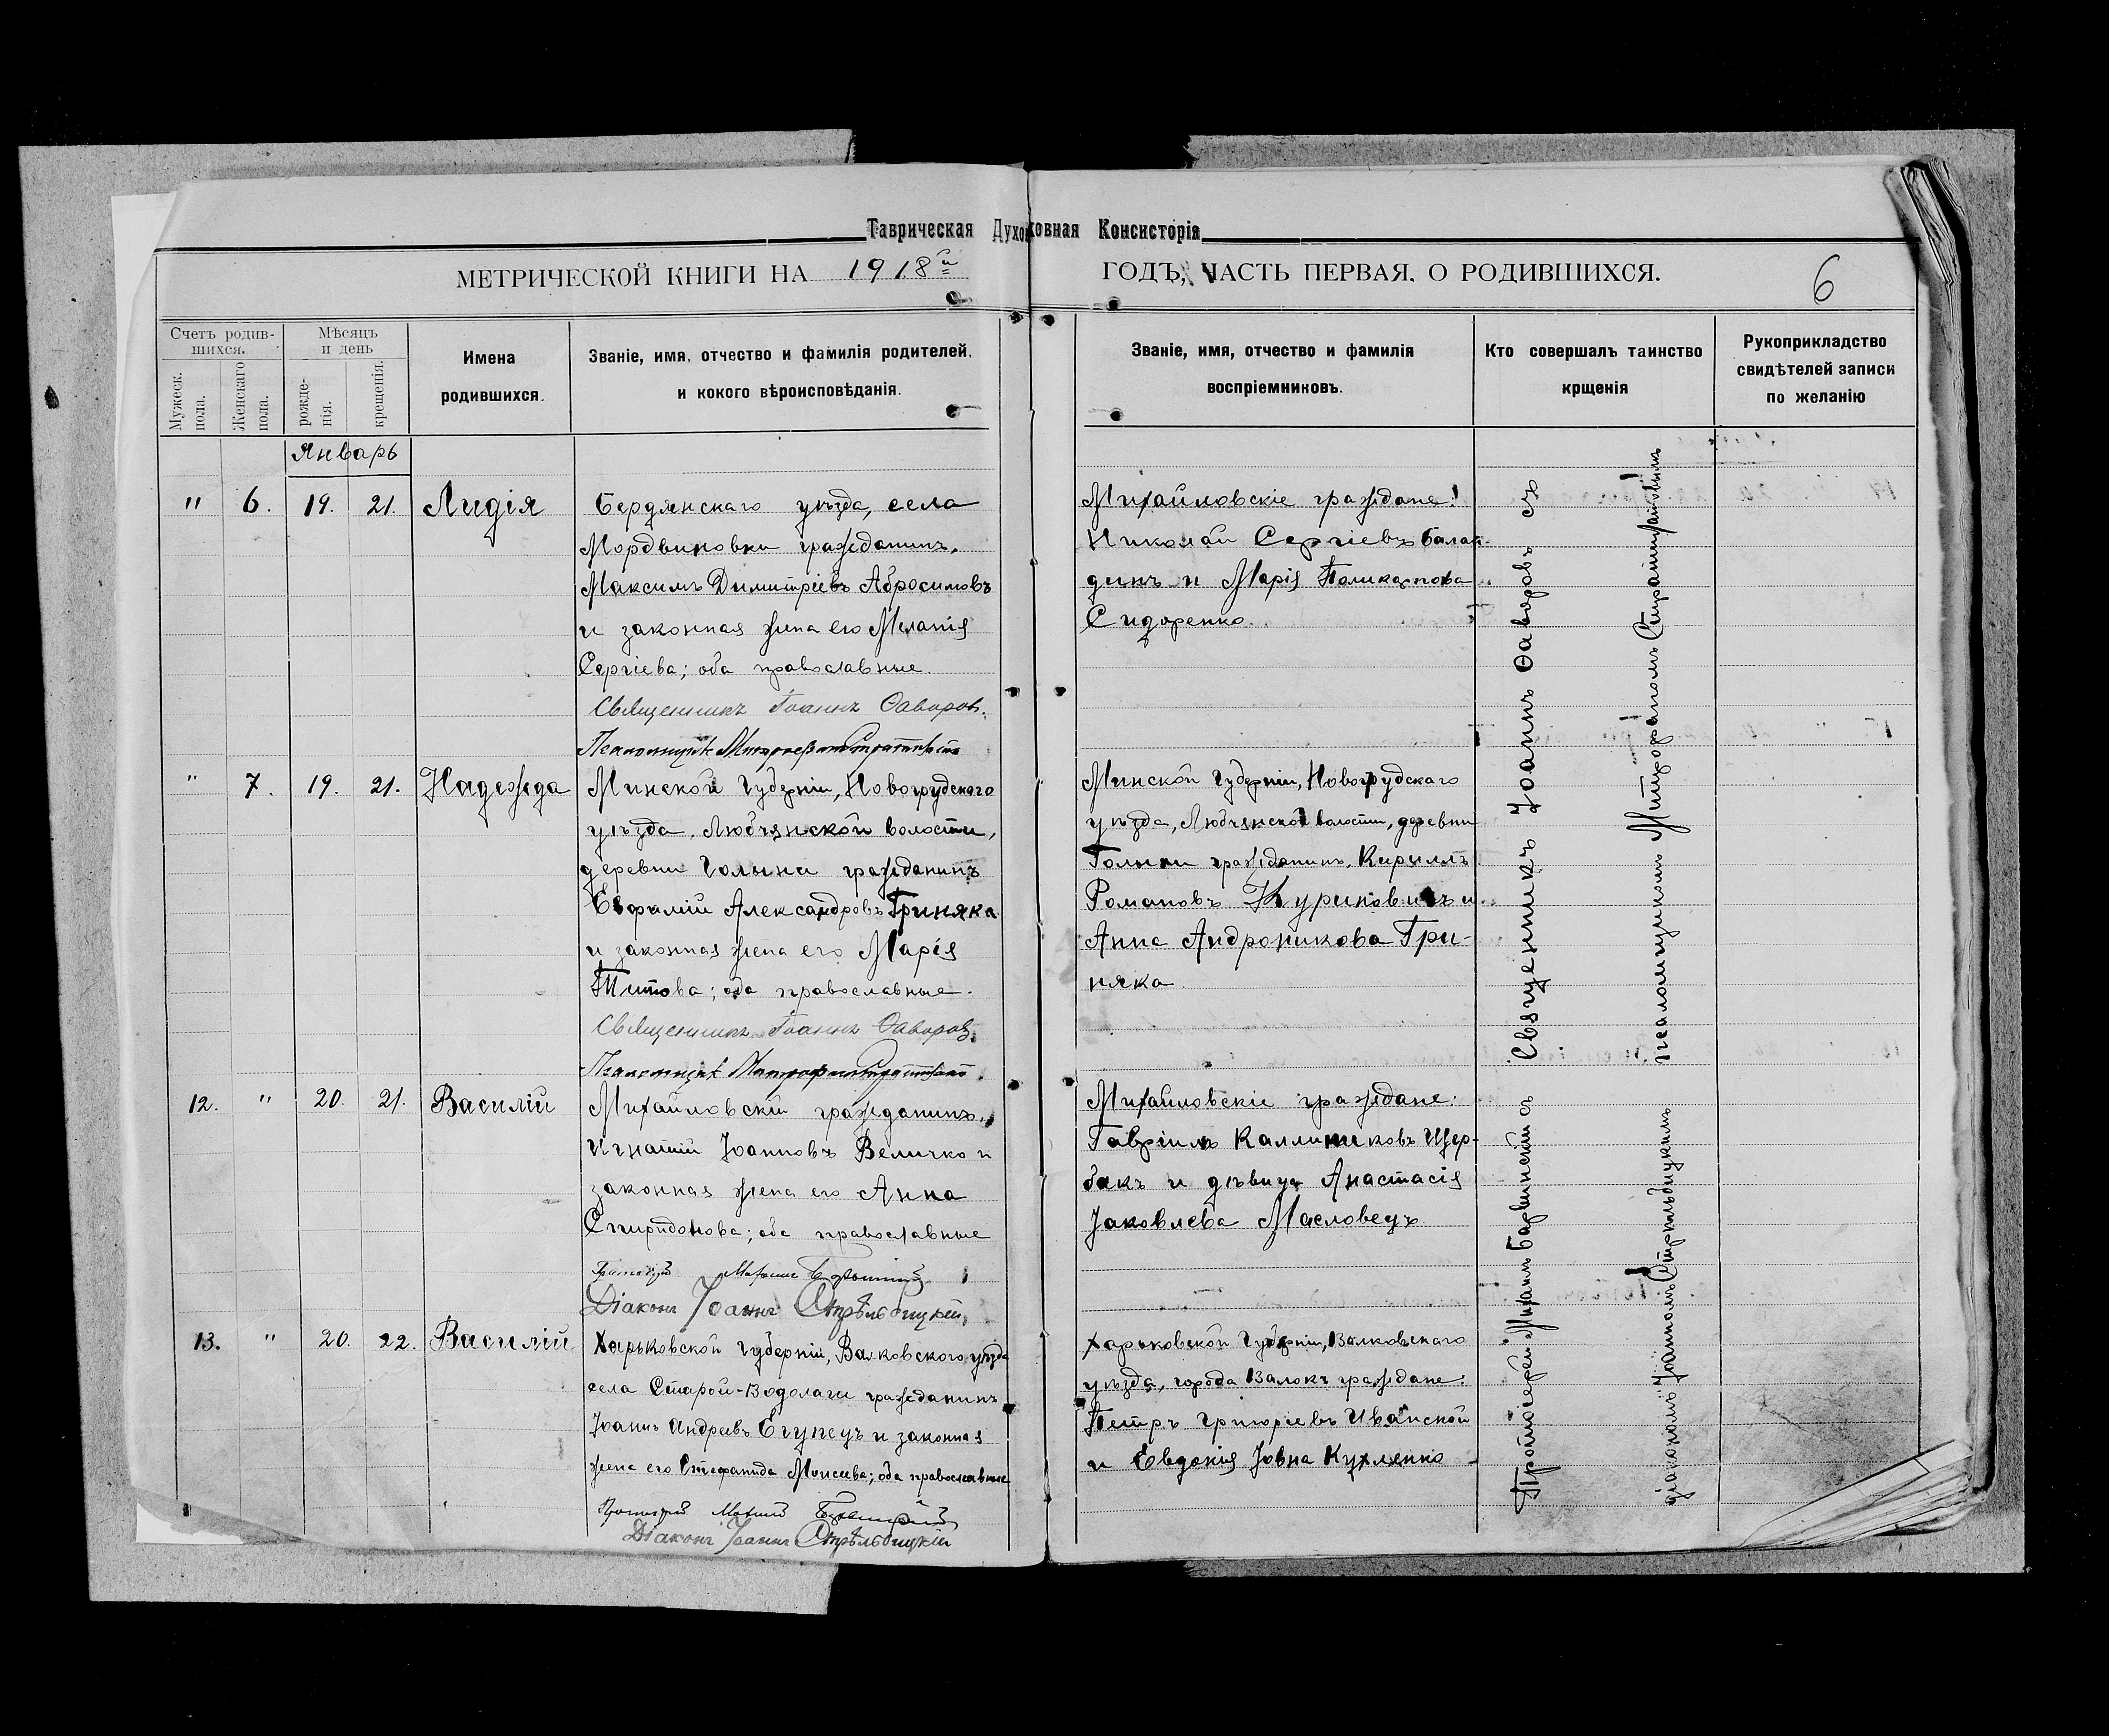 Таврическая Духовная Консисторія
МЕТРИЧЕСКОЙ КНИГИ НА 1918й ГОДЪ, ЧАСТЬ ПЕРВАЯ. О РОДИВШИХСЯ.
6
Счетъ родив-
шихся.
Мужеск.
пола.
Женскаго
пола.
Мѣсяцъ
и день
рожде-
нія.
крещенія.
Имена
родившихся.
Званіе, имя, отчество и фамилія родителей,
и кокого вѣроисповѣданія.
Званіе, имя, отчество и фамилія
воспріемниковъ.
Кто совершалъ таинство
крщенія
Рукоприкладство
свидѣтелей записи
по желанію
Январь
" 6. 19. 21. Лидія
Бердянскаго уѣзда, села
Мордвиновки гражданинъ,
Максимъ Димитріевъ Абросимовъ
и законная жена его Меланія
Сергіева; оба православные.
Священникъ Іоаннъ Ѳаворовъ.
Псаломщикъ
Михайловскіе граждане:
Николай Сергіевъ Балан-
динъ и Марія Поликарпова
Сидоренко.
Священникъ Іоаннъ Ѳаворовъ съ
псаломщикомъ Митрофаномъ
" 7. 19. 21. Надежда
Минской Губерніи, Новогрудскаго
уѣзда, Любчянской волости,
деревни Голыни гражданинъ
Евфимій Александровъ Гриняка
и законная жена его Марія
Титова; оба православные.
Священникъ Іоаннъ Ѳаворовъ.
Псаломщикъ
Минской Губерніи, Новогрудскаго
уѣзда, Любчянской волости, деревни
Голыни гражданинъ, Кириллъ
Романовъ Журиковичъ и
Анна Андроникова Гри-
няка
12. " 20. 21. Василій
Михайловскій гражданинъ,
Игнатій Іоанновъ Величко и
законная жена его Анна
Спиридонова; оба православные
Протоіерей
Діаконъ Іоаннъ Стрѣльбицкій
Михайловскіе граждане:
Гавріилъ Каллиниковъ Щер-
бакъ и дѣвица Анастасія
Іаковлева Масловецъ
Протоіерей Михаилъ съ
діакономъ Іоанномъ Стрѣльбицкимъ
13. " 20. 22. Василій
Харьковской губерніи, Валковского уѣзда
села Старой-Водолаги гражданинъ
Іоаннъ Андреевъ Егупецъ и законная
жена его Стефанида Моисеева; оба православные
Протоіерей
Діаконъ Іоаннъ Стрѣльбицкій
Харьковской Губерніи, Валковскаго
уѣзда, города Валокъ граждане:
Петръ Григоріевъ Иванской
и Евдокія Іовна Кухленко